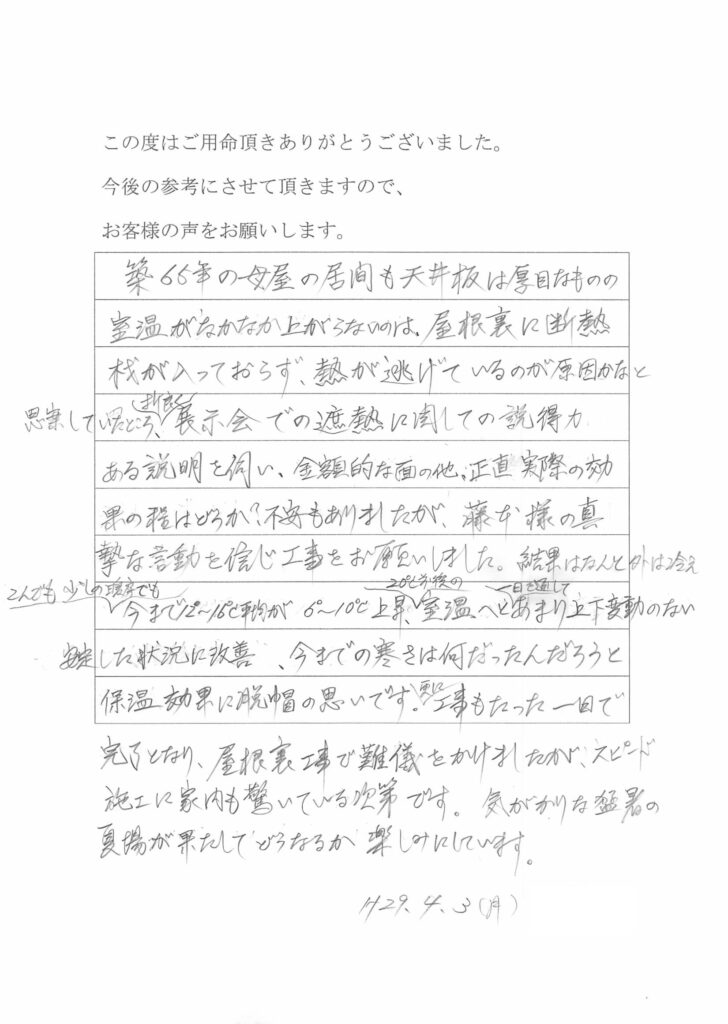 この度はご用命頂きありがとうございました。
今後の参考にさせて頂きますので、
お客様の声をお願いします。
築65年の母屋の居間も天井板は厚目なものの
室温がなかなか上がらないのは、屋根裏に断熱
材が入っておらず、熱が逃げているのが原因かなと
思案していたところ、折良く展示会での遮熱に関しての説得力
ある説明を伺い、金額的な面の他、正直実際の効
果の程はどうか?不安もありましたが、藤本様の真
摯な言動を信じ工事をお願いしました。結果はなんと外は冷え
こんでも少しの暖房でも
20℃前後の
一日を通して
今まで12~16℃平均が6~10℃上昇、室温へとあまり上下変動のない
安定した状況に改善、今までの寒さは何だったんだろうと
保温効果に脱帽の思いです。更に工事もたった一日で
完了となり、屋根裏工事で難儀をかけましたが、スピード
施工に家内も驚いている次第です。気がかりな猛暑の
夏場が果たしてどうなるか楽しみにしています。
H29.4.3(月)